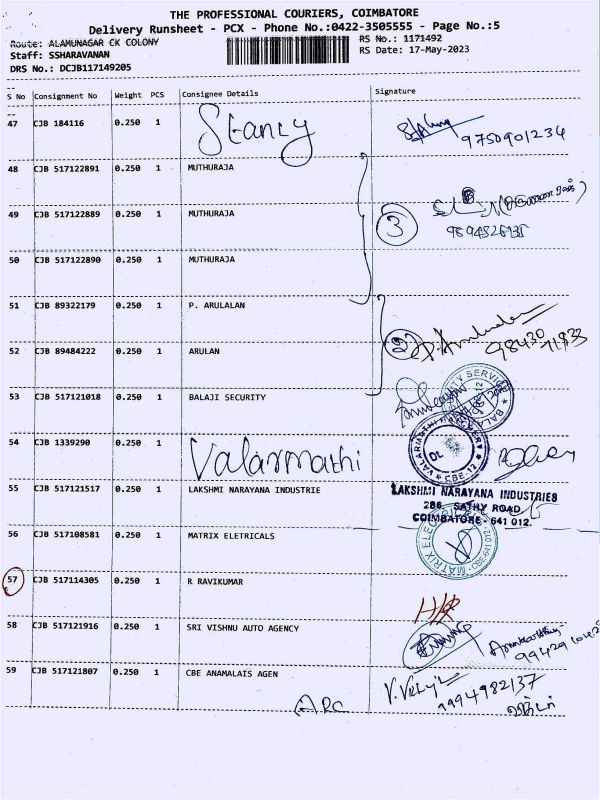 THE PROFESSIONAL COURIERS, COIMBATORE
Delivery Runsheet - PCX - Phone No.:0422-3505555 - Page No.:5
Route: ALAMUNAGAR CK COLONY
RS No.: 1171492
Staff: SSHARAVANAN
RS Date: 17-May-2023
DRS No.: DCJB117149205
S No Consignment No Weight PCS Consignee Details Signature
47 CJB 184116 0.250 1 Stanly 9750901234
48 CJB 517122891 0.250 1 MUTHURAJA
49 CJB 517122889 0.250 1 MUTHURAJA 3
50 CJB 517122890 0.250 1 MUTHURAJA
51 CJB 89322179 0.250 1 P. ARULALAN
52 CJB 89484222 0.250 1 ARULAN 2 98430 71833
53 CJB 517121018 0.250 1 BALAJI SECURITY
54 CJB 1339290 0.250 1 Valarmathi
CBE-12
55 CJB 517121517 0.250 1 LAKSHMI NARAYANA INDUSTRIE
LAKSHMI NARAYANA INDUSTRIES
286, SATHY ROAD
COIMBATORE - 641 012.
56 CJB 517108581 0.250 1 MATRIX ELETRICALS
57 CJB 517114305 0.250 1 R RAVIKUMAR
H/R
58 CJB 517121916 0.250 1 SRI VISHNU AUTO AGENCY
59 CJB 517121807 0.250 1 CBE ANAMALAIS AGEN
9994982137